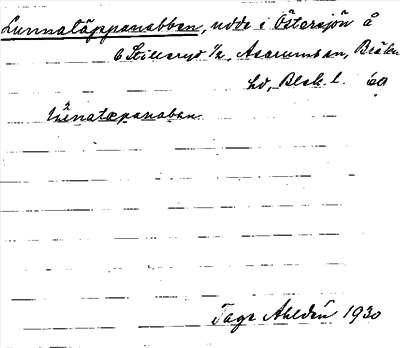 Lunnatäppanabben, udde i Östersjön å
6 Seilleryd 1/2, Asarums sn, Bräkne
hd, Blek. l. 69
Lünatæpanabən
Tage Ahldén 1930